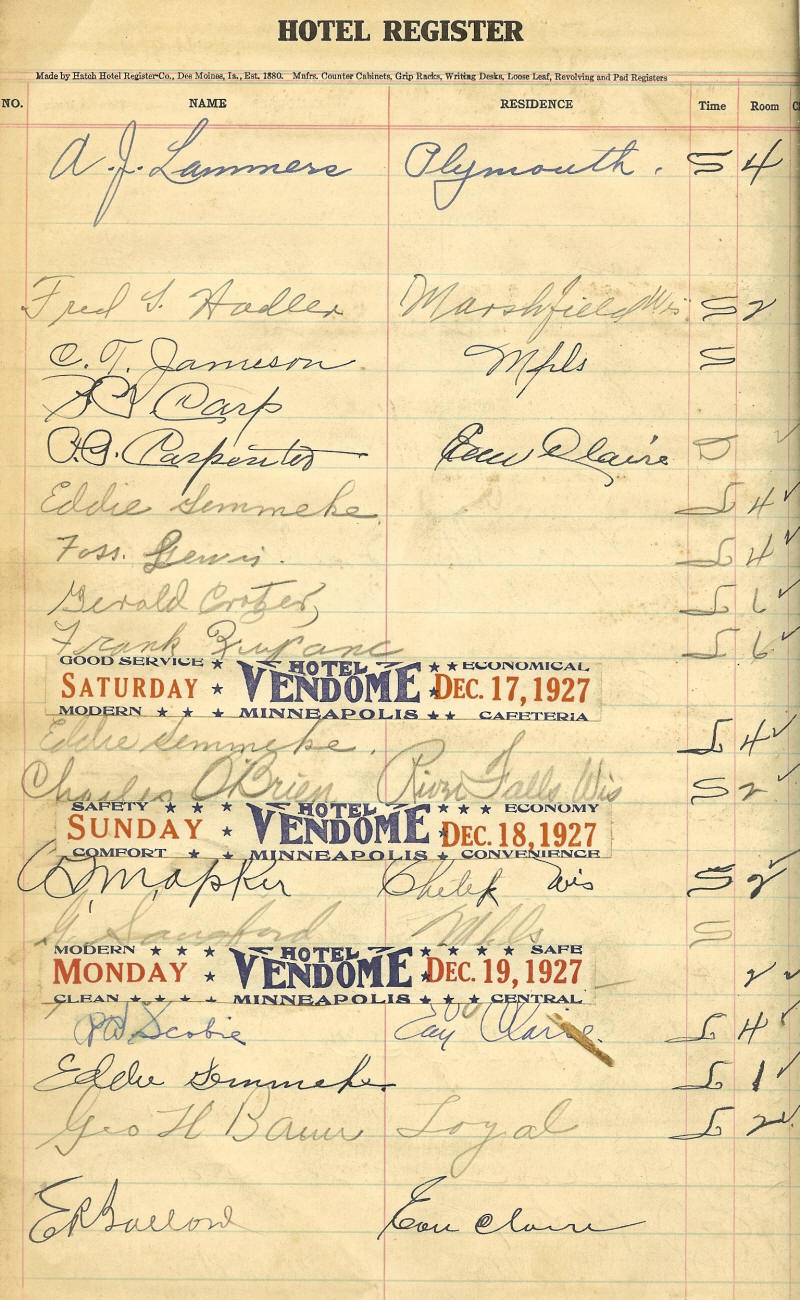 HOTEL REGISTER
Made by Hatch Hotel Register Co., Des Moines, Ia., Est. 1880. Mnfrs. Counter Cabinets, Grip Racks, Writing Desks, Loose Leaf, Revolving and Pad Registers
NO. NAME RESIDENCE Time Room
A. J. Lammers Plymouth. S 4
Fred S. Hadler Marshfield Wis S 2
C. T. Jameson Mpls S
Carp
Carpenter Eau Claire D
Eddie Semmeke L 4 ✓
Foss. Lewis. L 4 ✓
Gerald L 6 ✓
Frank L 6 ✓
GOOD SERVICE ★ HOTEL ★ ★ ECONOMICAL
SATURDAY ★ VENDOME ★ DEC. 17, 1927
MODERN ★ ★ ★ MINNEAPOLIS ★ ★ CAFETERIA
Eddie Semmeke. L 4 ✓
Charles O'Brien River Falls Wis S 2 ✓
SAFETY ★ ★ ★ HOTEL ★ ★ ★ ECONOMY
SUNDAY ★ VENDOME ★ DEC. 18, 1927
COMFORT ★ ★ MINNEAPOLIS ★ CONVENIENCE
Chetek Wis S 2 ✓
Langford Mpls S
MODERN ★ ★ ★ HOTEL ★ ★ ★ SAFE
MONDAY ★ VENDOME ★ DEC. 19, 1927 2 ✓
CLEAN ★ ★ ★ MINNEAPOLIS ★ ★ ★ CENTRAL
Scobie Eau Claire. L 4 ✓
Eddie Semmeke. L 1 ✓
Geo H Bauer Loyal L 2 ✓
E R Ballord Eau Claire